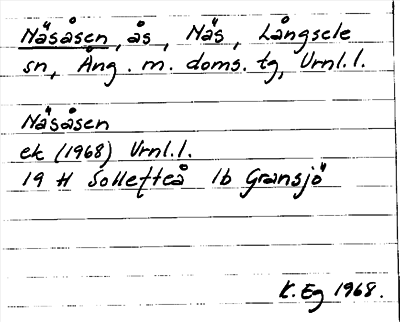 Näsåsen, ås, Näs, Långsele
sn, Ång. m. doms. tg, Vrnl.l.
Näsåsen
ek (1968) Vrnl.l.
19 H Sollefteå 1b Gransjö
K. Eg 1968.